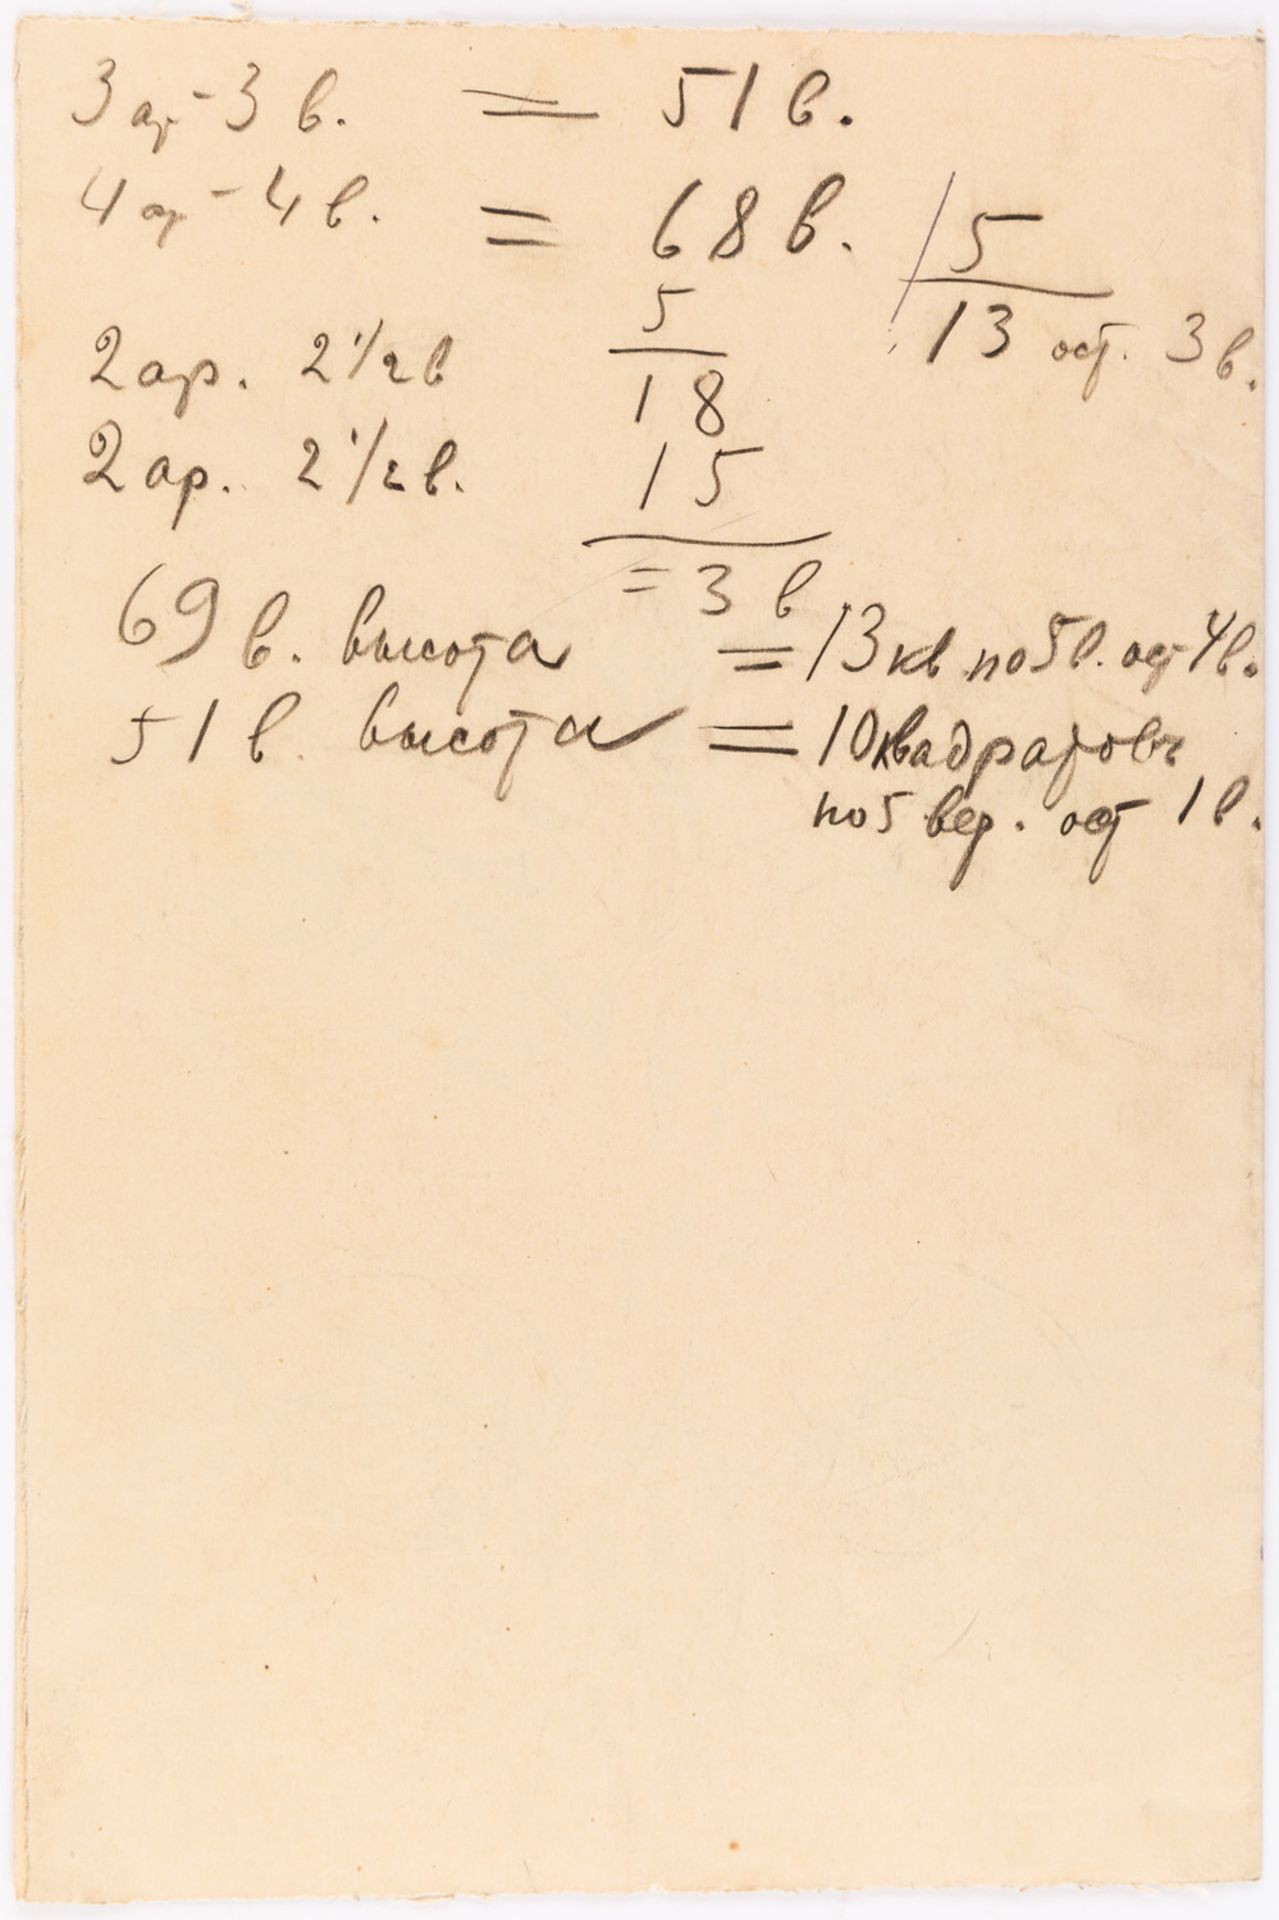 3 ар - 3 в. = 51 в.
4 ар - 4 в. = 68 в. / 5
5
13 ост. 3 в.
2 ар. 2 1/2 в
18
2 ар. 2 1/2 в.
15
= 3 в
69 в. высота = 13 кв по 5 в. ост 4 в.
51 в. высота = 10 квадратовъ
по 5 вер. ост 1 в.